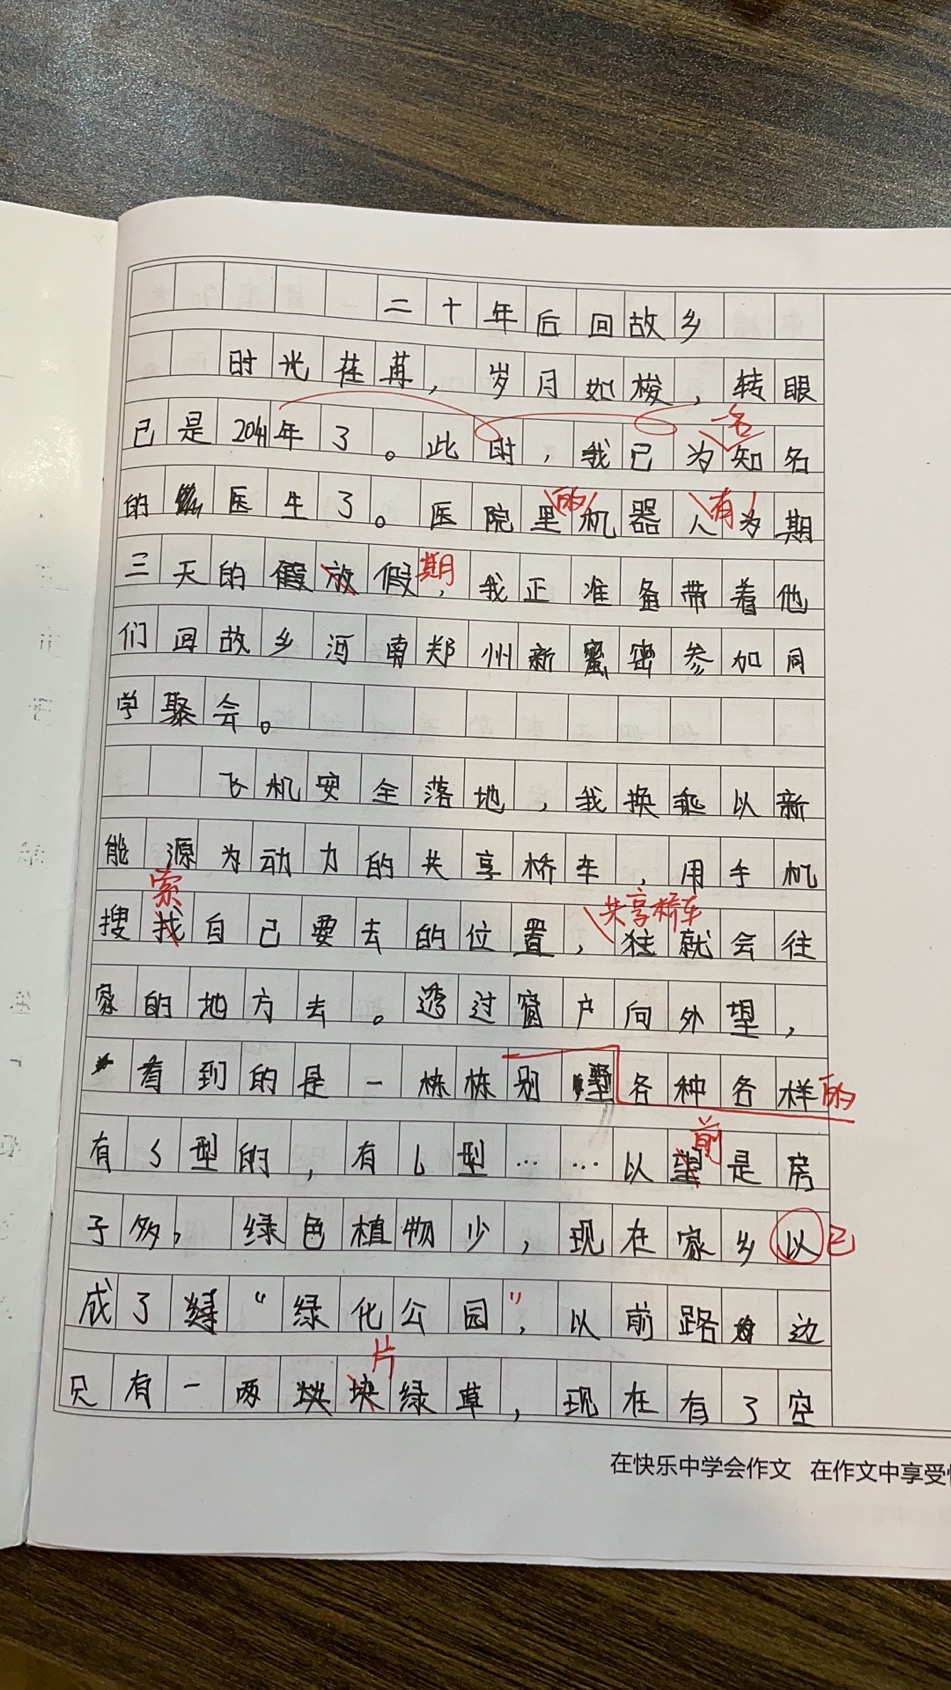 二十年后回故乡
时光荏苒，岁月如梭，转眼
一名
已是2041年了。此时，我已为知名
的医生了。医院里的机器人有为期
三天的假放假期，我正准备带着他
们回故乡河南郑州新密参加同
学聚会。
飞机安全落地，我换乘以新
能源为动力的共享桥车，用手机
索 共享桥车
搜找自己要去的位置，就会往
家的地方去。透过窗户向外望，
看到的是一栋栋别墅各种各样的
前
有S型的，有L型……以望是房
子多，绿色植物少，现在家乡以已
成了“绿化公园”，以前路边
片
只有一两块绿草，现在有了空
在快乐中学会作文 在作文中享受